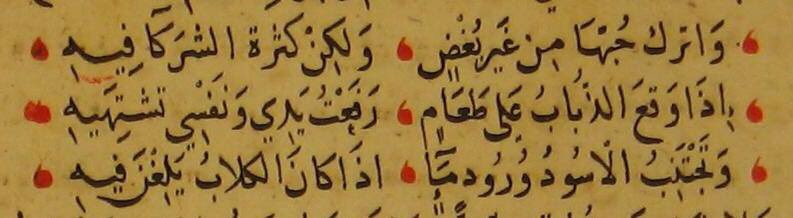 وَاترك حُبّهَا مِن غَيرِ بُغْضٍ وَلكِنْ كَثرة الشرَكَا فِيهِ
إِذَا وَقَعَ الذّبابُ عَلى طَعَامٍ رَفَعْتُ يَدِي وَنَفْسِي تَشتهِيهِ
وَتَجْتَنِبُ الْاسُودُ وُرُودَ مَآءٍ اذَا كانَ الكلابُ يَلِغْنَ فِيهِ